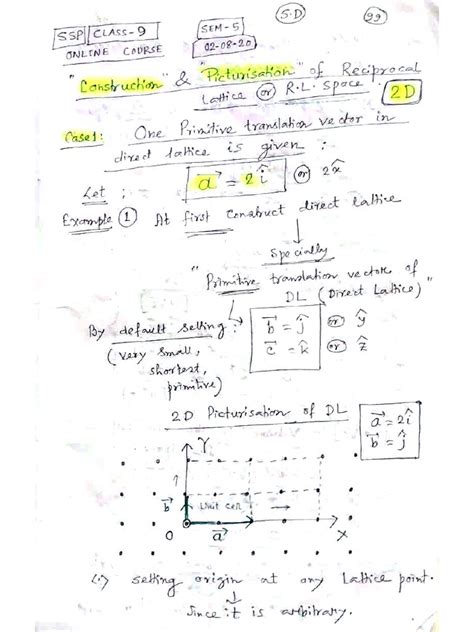 S.D
99
SSP CLASS-9
SEM-5
ONLINE COURSE
02-08-20
"Construction" & "Picturisation" of Reciprocal
Lattice or R.L. Space. 2D
Case1: One Primitive translation vector in
direct lattice is given:
Let; a⃗ = 2î or 2x̂
Example 1 At first Construct direct lattice
Specially
"Primitive translation vectors of
DL (Direct Lattice)"
By default setting: b⃗ = ĵ or ŷ
(very small, c⃗ = k̂ or ẑ
shortest,
primitive)
2D Picturisation of DL
a⃗ = 2î
b⃗ = ĵ
Y
b⃗ Unit Cell
O a⃗ X
setting origin at any Lattice point.
Since it is arbitrary.